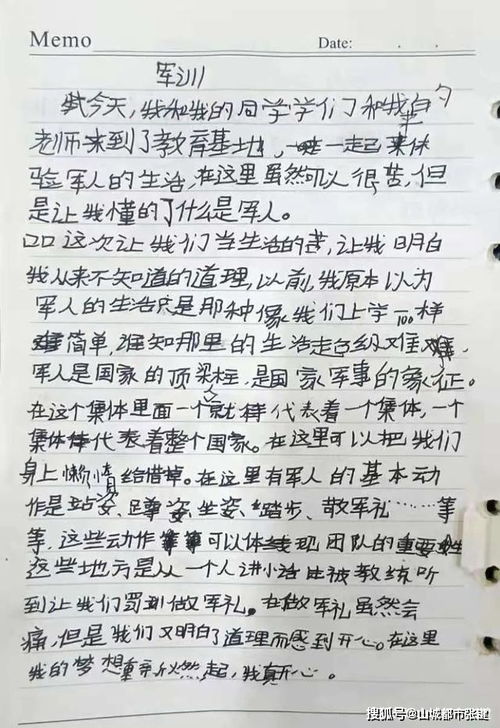 Memo
Date: . .
军训
今天，我和我的同学学们和我的
老师来到了教育基地，一起来体
验军人的生活，在这里虽然可以很苦，但
是让我懂的了什么是军人。
这次让我们当生活的苦，让我明白
我从来不知道的道理，以前，我原本以为
军人的生活只是那种像我们上学一样
简单，谁知那里的生活走色级难，
军人是国家的顶梁柱，是国家军事的象征。
在这个集体里面一个就样代表着一个集体，一个
集体代表着整个国家。在这里可以把我们
身上懒惰给借掉。在这里有军人的基本动
作是站姿、蹲姿、坐姿、踏步、敬军礼……等
等，这些动作可以体现团队的重要性
这些地方是从一个人讲小话被教练听
到让我们罚做军礼。在做军礼虽然会
痛，但是我们又明白了道理而感到开心。在这里
我的梦想重燃起，我真开心。
搜狐号@山城都市张健